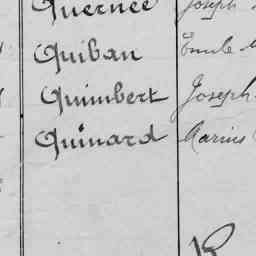 Quernée Joseph
Quiban Emile
Quimbert Joseph
Quinard Marius
R